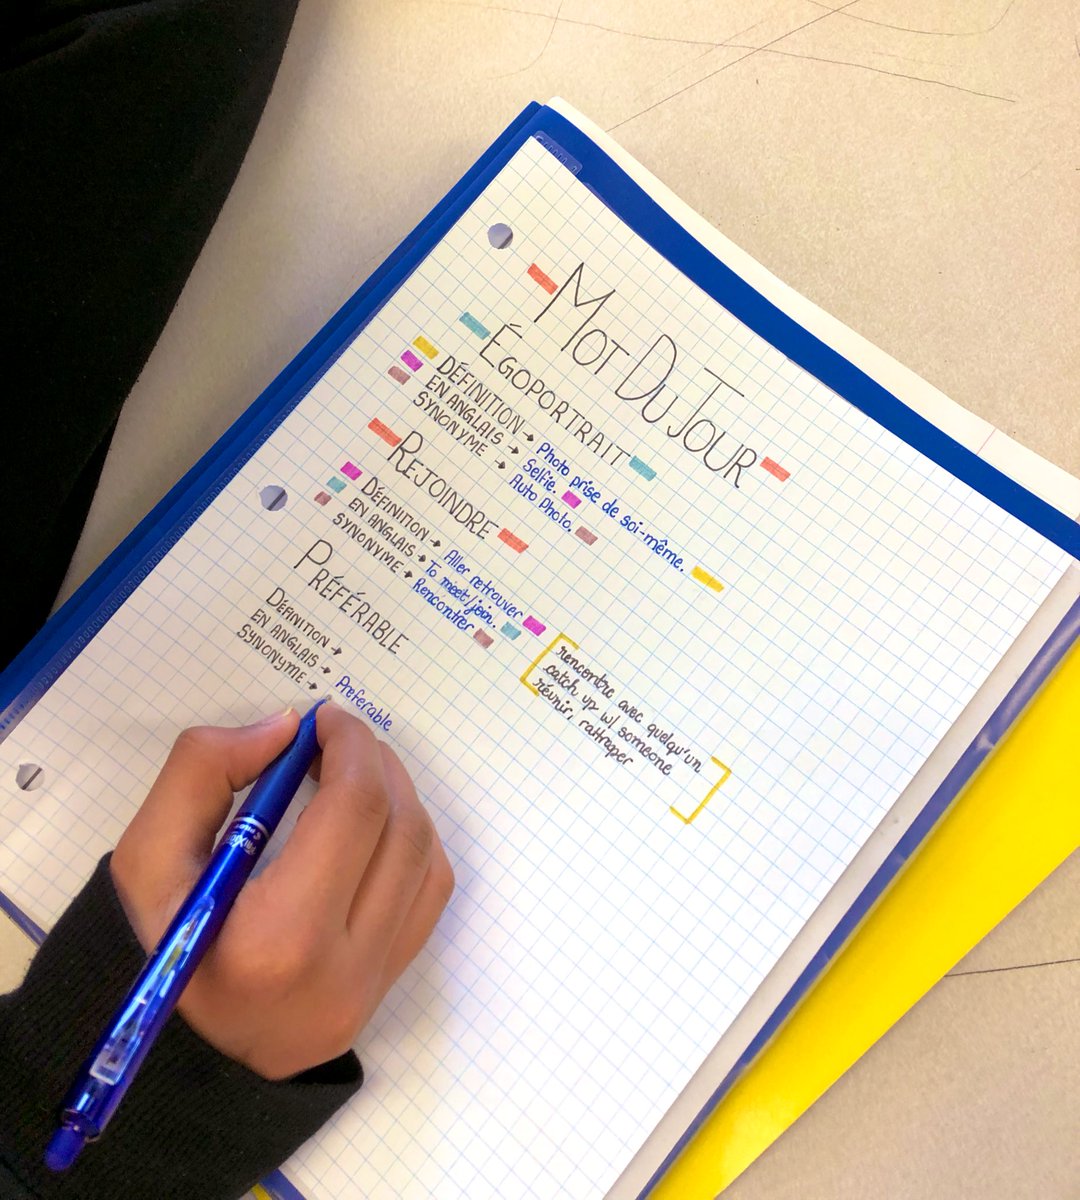 MOT DU JOUR
ÉGOPORTRAIT
DÉFINITION → Photo prise de soi-même.
EN ANGLAIS → Selfie.
SYNONYME → Auto Photo.
REJOINDRE
DÉFINITION → Aller retrouver
EN ANGLAIS → To meet/join.
SYNONYME → Rencontrer
rencontre avec quelqu'un
catch up w/ someone
réunir, rattraper
PRÉFÉRABLE
DÉFINITION →
EN ANGLAIS → Preferable
SYNONYME →